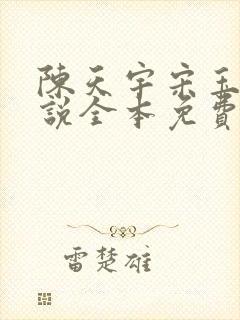 陳天宇宋玉
說全本免費
雷楚雄